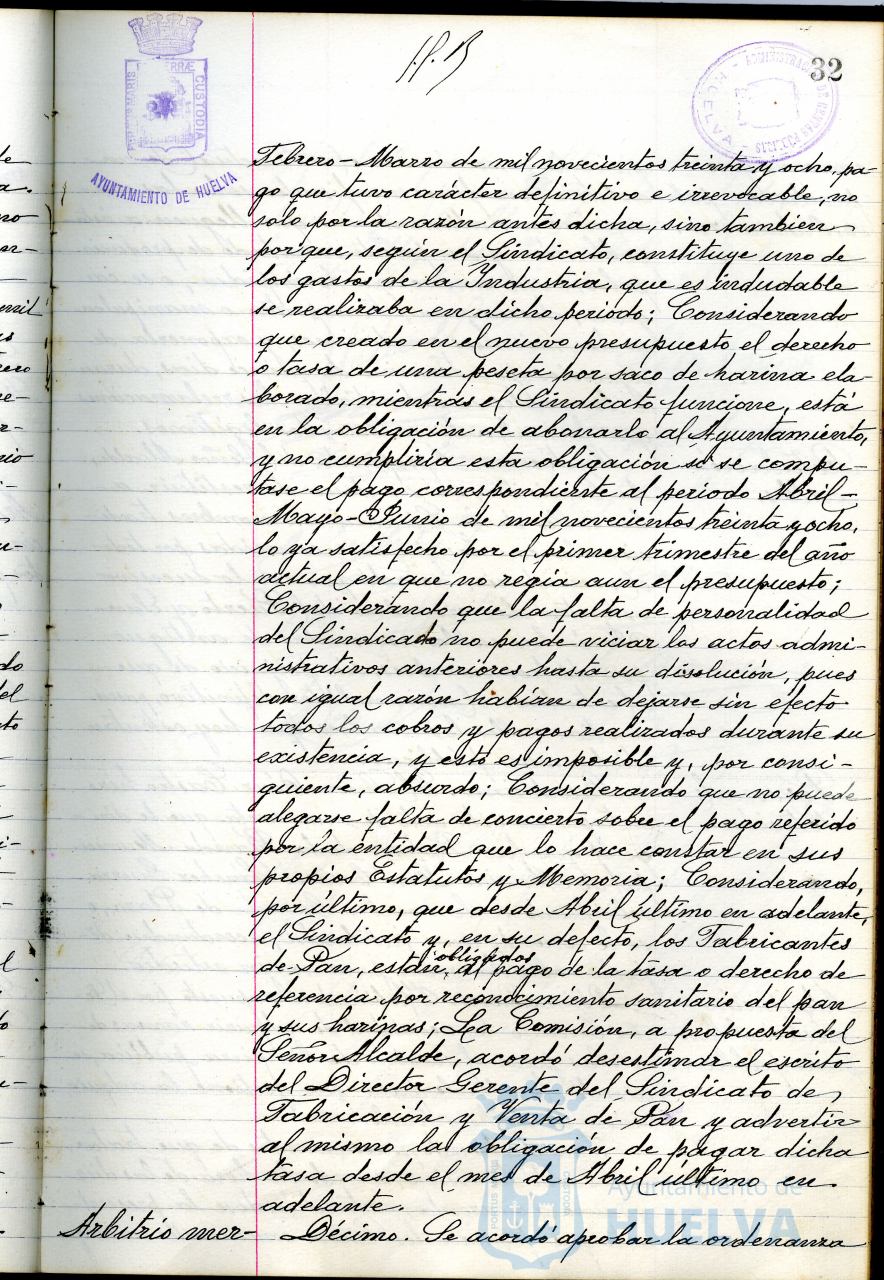 32
AYUNTAMIENTO DE HUELVA
Febrero-Marzo de mil novecientos treinta y ocho, pa-
go que tuvo carácter definitivo e irrevocable, no
solo por la razón antes dicha, sino tambien
porque, según el Sindicato, constituye uno de
los gastos de la Industria, que es indudable
se realizaba en dicho periodo; Considerando
que creado en el nuevo presupuesto el derecho
o tasa de una peseta por saco de harina ela-
borado, mientras el Sindicato funcione, está
en la obligación de abonarlo al Ayuntamiento,
y no cumpliría esta obligación si se compu-
tase el pago correspondiente al periodo Abril-
Mayo-Junio de mil novecientos treinta y ocho,
lo ya satisfecho por el primer trimestre del año
actual en que no regia aun el presupuesto;
Considerando que la falta de personalidad
del Sindicado no puede viciar los actos admi-
nistrativos anteriores hasta su disolución, pues
con igual razón habían de dejarse sin efecto
todos los cobros y pagos realizados durante su
existencia, y esto es imposible y, por consi-
guiente, absurdo; Considerando que no puede
alegarse falta de concierto sobre el pago referido
por la entidad que lo hace constar en sus
propios Estatutos y Memoria; Considerando,
por último, que desde Abril último en adelante,
el Sindicato y, en su defecto, los Fabricantes
de Pan, están obligados al pago de la tasa o derecho de
referencia por reconocimiento sanitario del pan
y sus harinas; La Comisión, a propuesta del
Señor Alcalde, acordó desestimar el escrito
del Director Gerente del Sindicato de
Fabricación y Venta de Pan y advertir
al mismo la obligación de pagar dicha
tasa desde el mes de Abril último en
adelante.
Arbitrio mer- Décimo. Se acordó aprobar la ordenanza
Ayuntamiento de
HUELVA